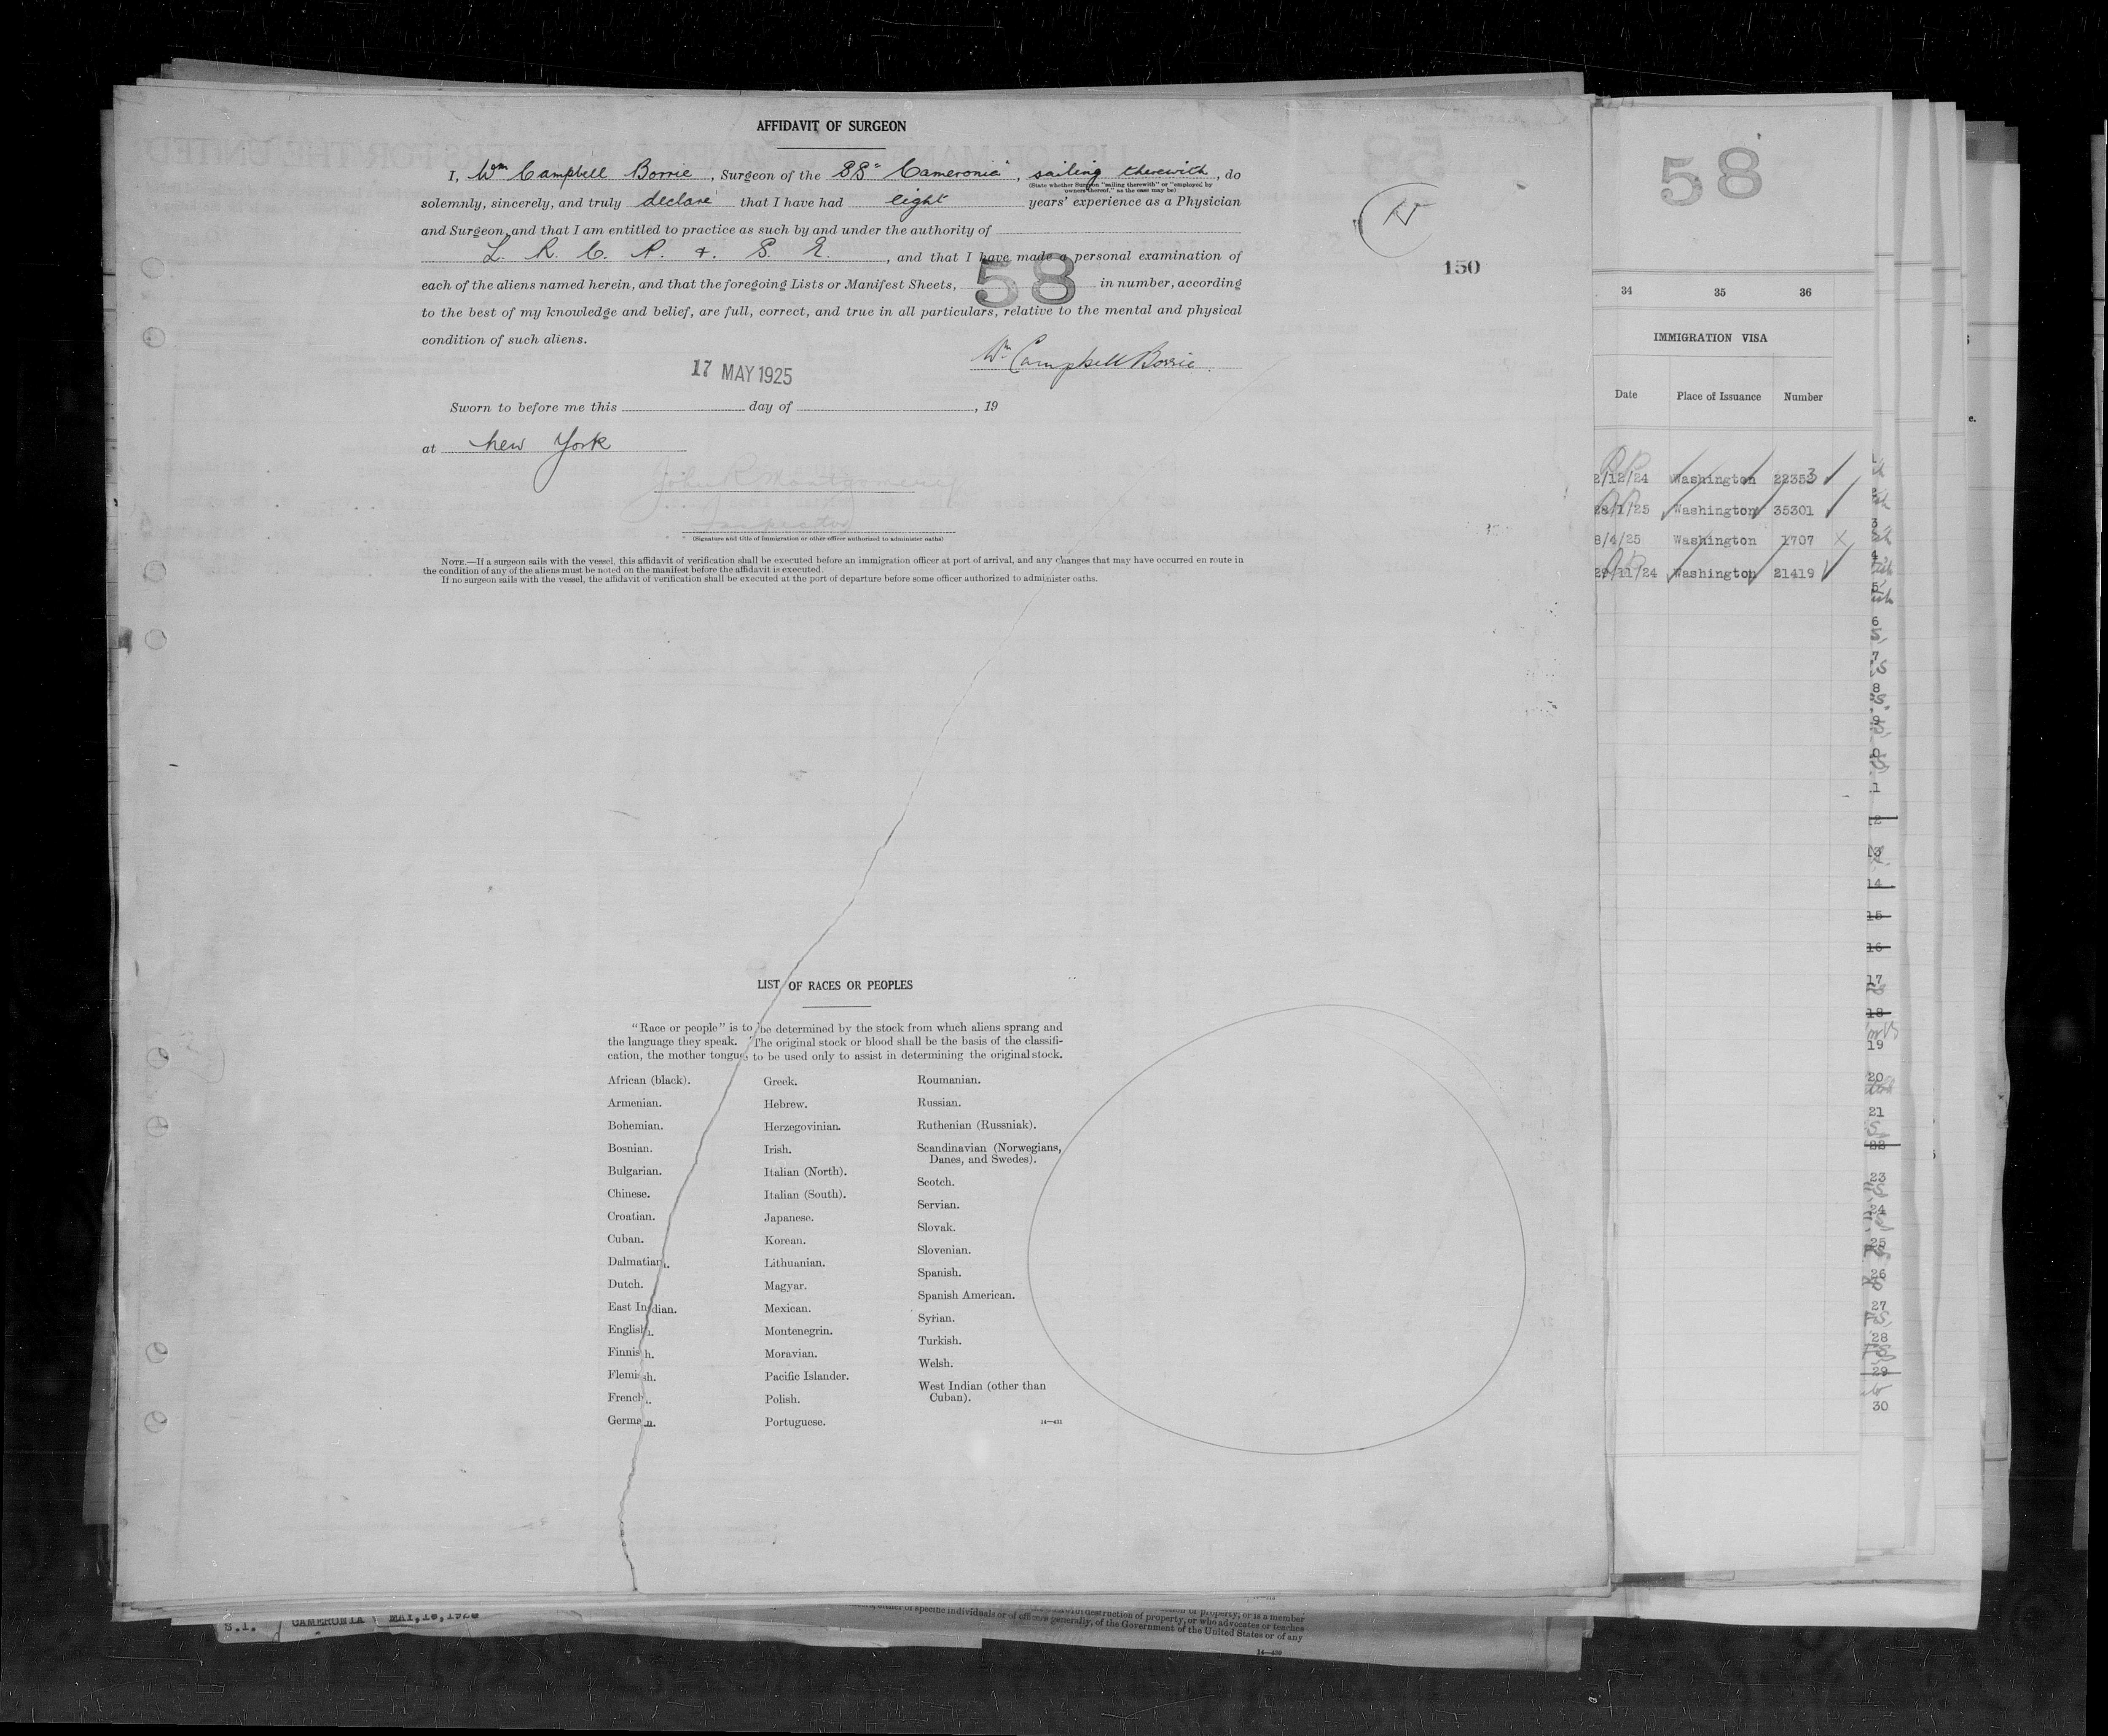 AFFIDAVIT OF SURGEON
I, Wm Campbell Borrie, Surgeon of the SS "Cameronia", sailing therewith, do
(State whether Surgeon "sailing therewith" or "employed by owners thereof," as the case may be)
solemnly, sincerely, and truly declare that I have had eight years' experience as a Physician
and Surgeon, and that I am entitled to practice as such by and under the authority of
L. R. C. P. & S. E., and that I have made a personal examination of
each of the aliens named herein, and that the foregoing Lists or Manifest Sheets, 58 in number, according
to the best of my knowledge and belief, are full, correct, and true in all particulars, relative to the mental and physical
condition of such aliens.
Wm Campbell Borrie.
17 MAY 1925
Sworn to before me this day of , 19
at New York
John R Montgomery
Inspector
(Signature and title of immigration or other officer authorized to administer oaths)
NOTE.—If a surgeon sails with the vessel, this affidavit of verification shall be executed before an immigration officer at port of arrival, and any changes that may have occurred en route in
the condition of any of the aliens must be noted on the manifest before the affidavit is executed.
If no surgeon sails with the vessel, the affidavit of verification shall be executed at the port of departure before some officer authorized to administer oaths.
150
LIST OF RACES OR PEOPLES
"Race or people" is to be determined by the stock from which aliens sprang and
the language they speak. The original stock or blood shall be the basis of the classifi-
cation, the mother tongue to be used only to assist in determining the original stock.
African (black).
Armenian.
Bohemian.
Bosnian.
Bulgarian.
Chinese.
Croatian.
Cuban.
Dalmatian.
Dutch.
East Indian.
English.
Finnish.
Flemish.
French.
German.
Greek.
Hebrew.
Herzegovinian.
Irish.
Italian (North).
Italian (South).
Japanese.
Korean.
Lithuanian.
Magyar.
Mexican.
Montenegrin.
Moravian.
Pacific Islander.
Polish.
Portuguese.
Roumanian.
Russian.
Ruthenian (Russniak).
Scandinavian (Norwegians,
Danes, and Swedes).
Scotch.
Servian.
Slovak.
Slovenian.
Spanish.
Spanish American.
Syrian.
Turkish.
Welsh.
West Indian (other than
Cuban).
14—431
58
34 35 36
IMMIGRATION VISA
Date Place of Issuance Number
2/12/24 Washington 22353
28/1/25 Washington 35301
8/4/25 Washington 1707
29/11/24 Washington 21419
6
7
8
9
13
14
15
16
17
18
19
20
21
22
23
24
25
26
27
28
29
30
S.I. CAMERONIA MAY,16,192
of property, or is a member
destruction of property, or who advocates or teaches
of specific individuals or of officers generally, of the Government of the United States or of any
14—430